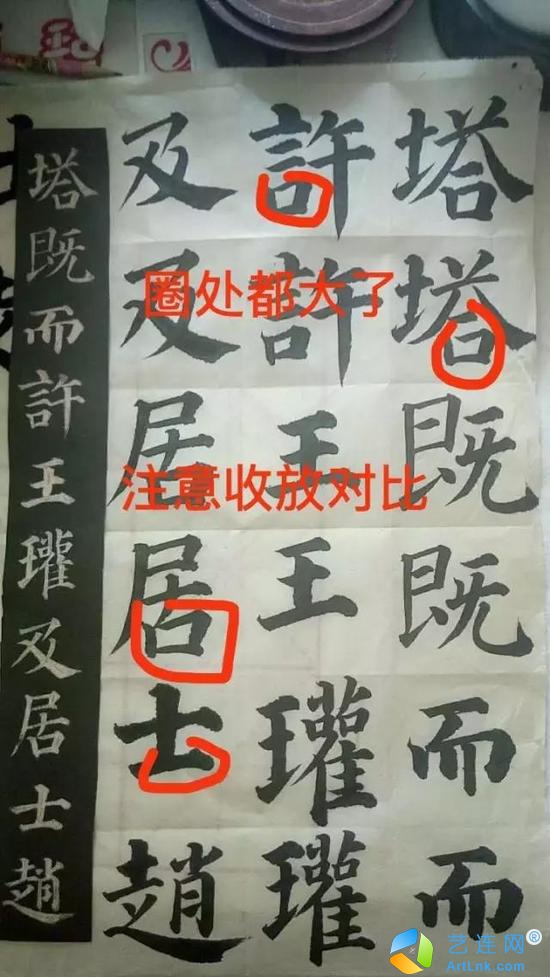 塔塔既既而而
許許王王瓘瓘
及及居居士趙
塔既而許王瓘及居士趙
圈处都大了
注意收放对比
艺连网®
ArtLnk.com